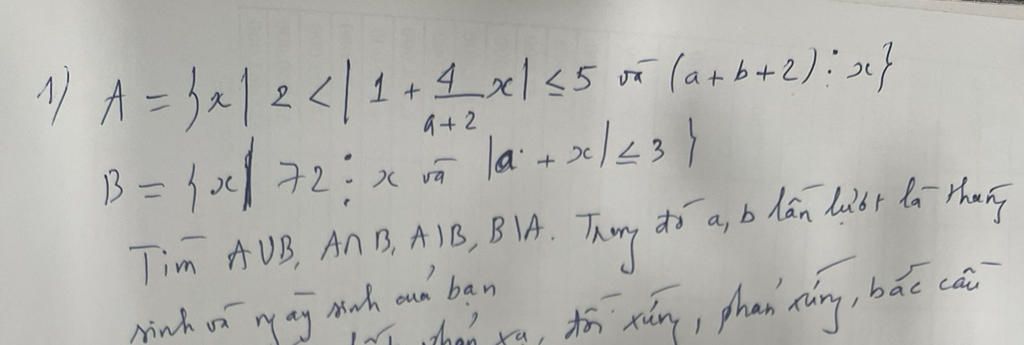 1) A = {x | 2 < | 1 + 4/(a+2) x | ≤ 5 và (a + b + 2) ⋮ x}
B = {x | 72 ⋮ x và |a + x| ≤ 3 }
Tìm A∪B, A∩B, A\B, B\A. Trong đó a, b lần lượt là tháng
sinh và ngày sinh của bạn
phản xạ, đối xứng, phản xứng, bắc cầu